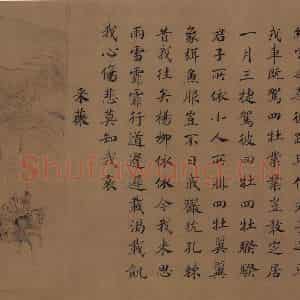 維常之華彼路斯何君子之車
戎車既駕四牡業業豈敢定居
一月三捷駕彼四牡四牡騤騤
君子所依小人所腓四牡翼翼
象弭魚服豈不日戒玁狁孔棘
昔我往矣楊柳依依今我來思
雨雪霏霏行道遲遲載渴載飢
我心傷悲莫知我哀
采薇
Shufawang.cn